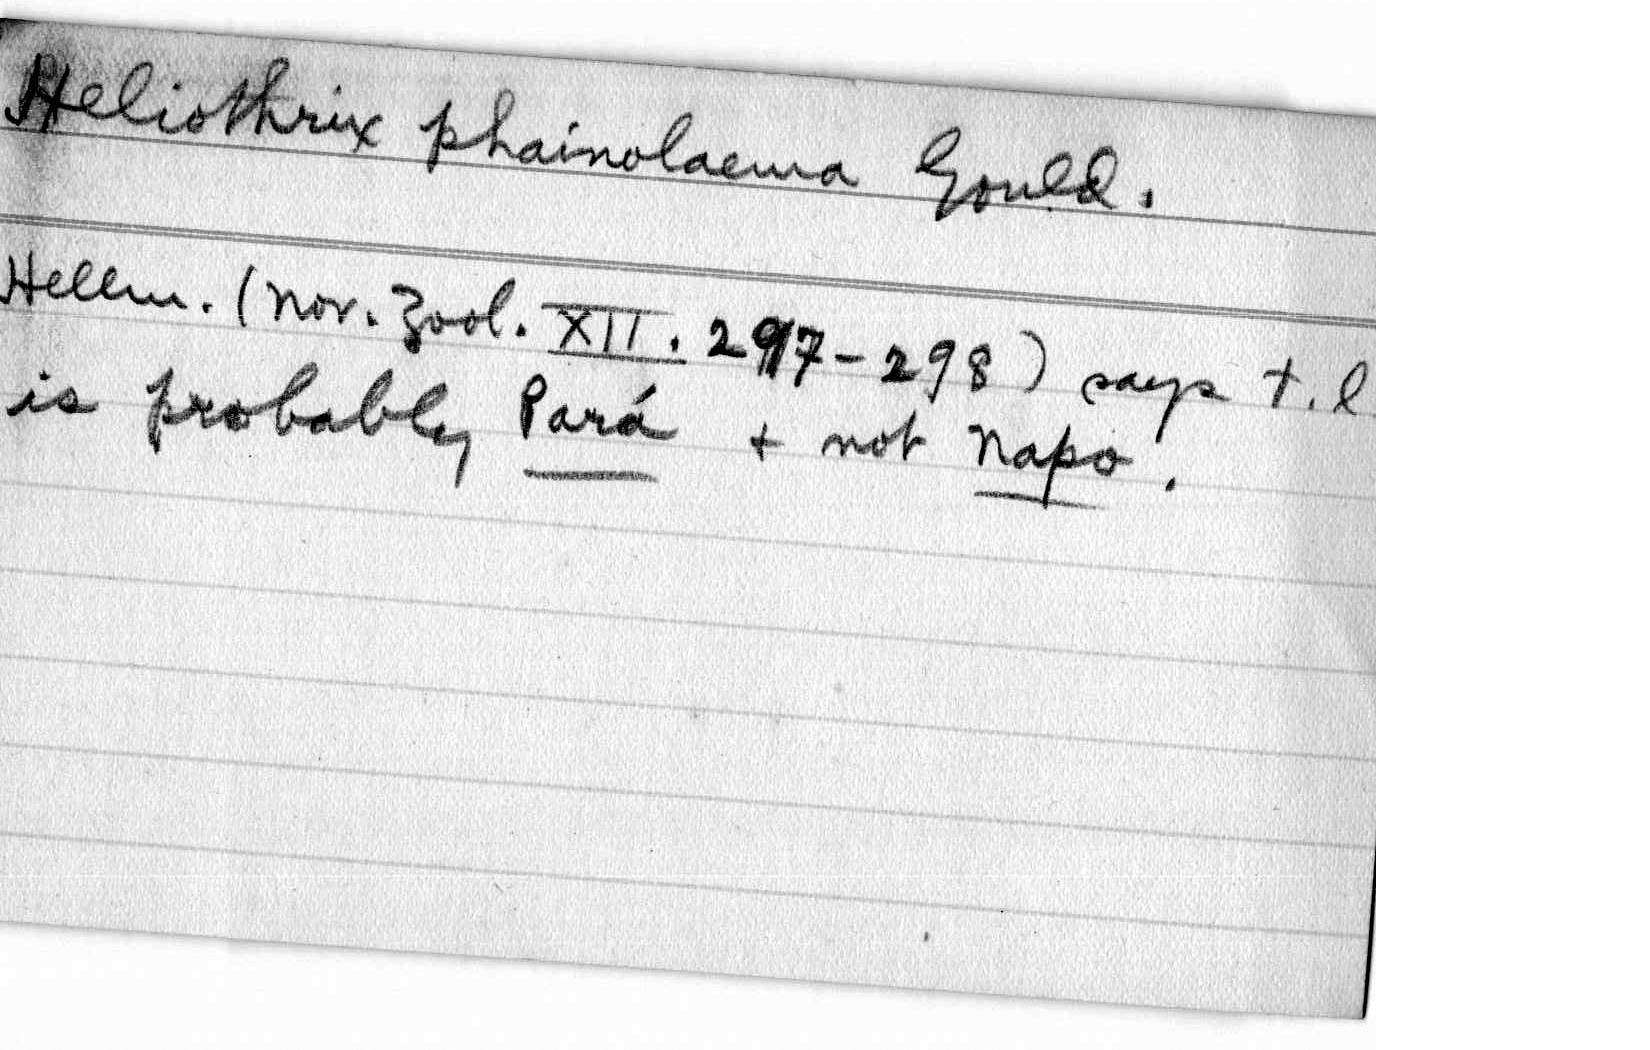 Heliothrix phainolaema Gould.
Hellm. (Nov. Zool. XII. 297-298) says t.l
is probably Pará + not Napo.